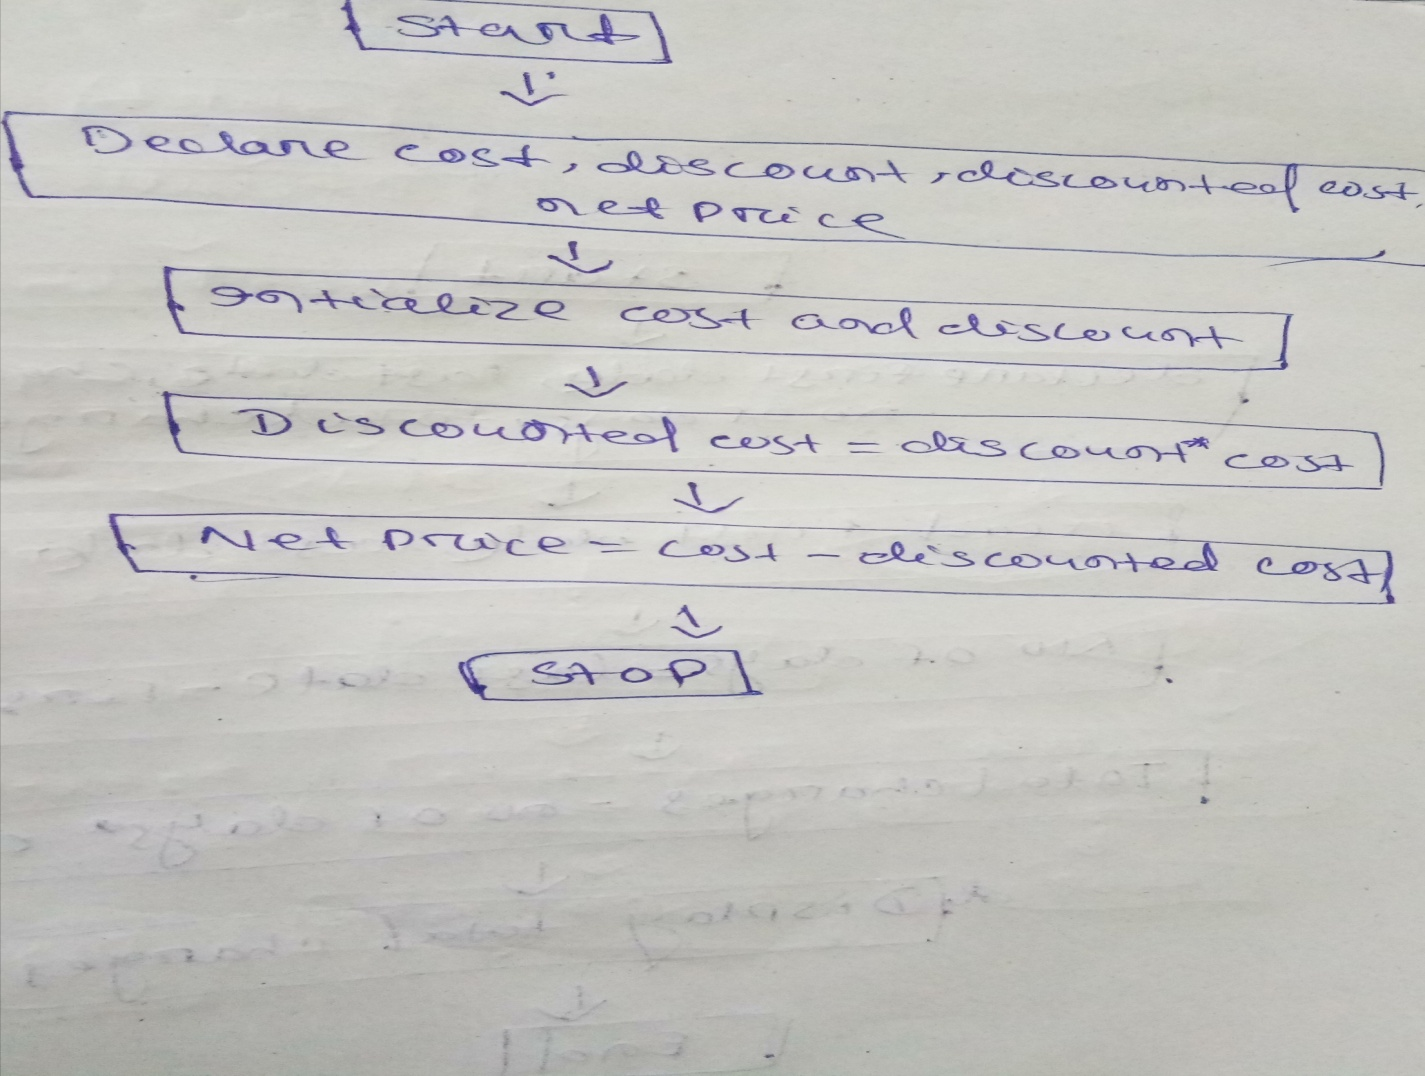 Start
Declare cost, discount, discounted cost,
net price
Initialize cost and discount
Discounted cost = discount * cost
Net price = cost - discounted cost
STOP